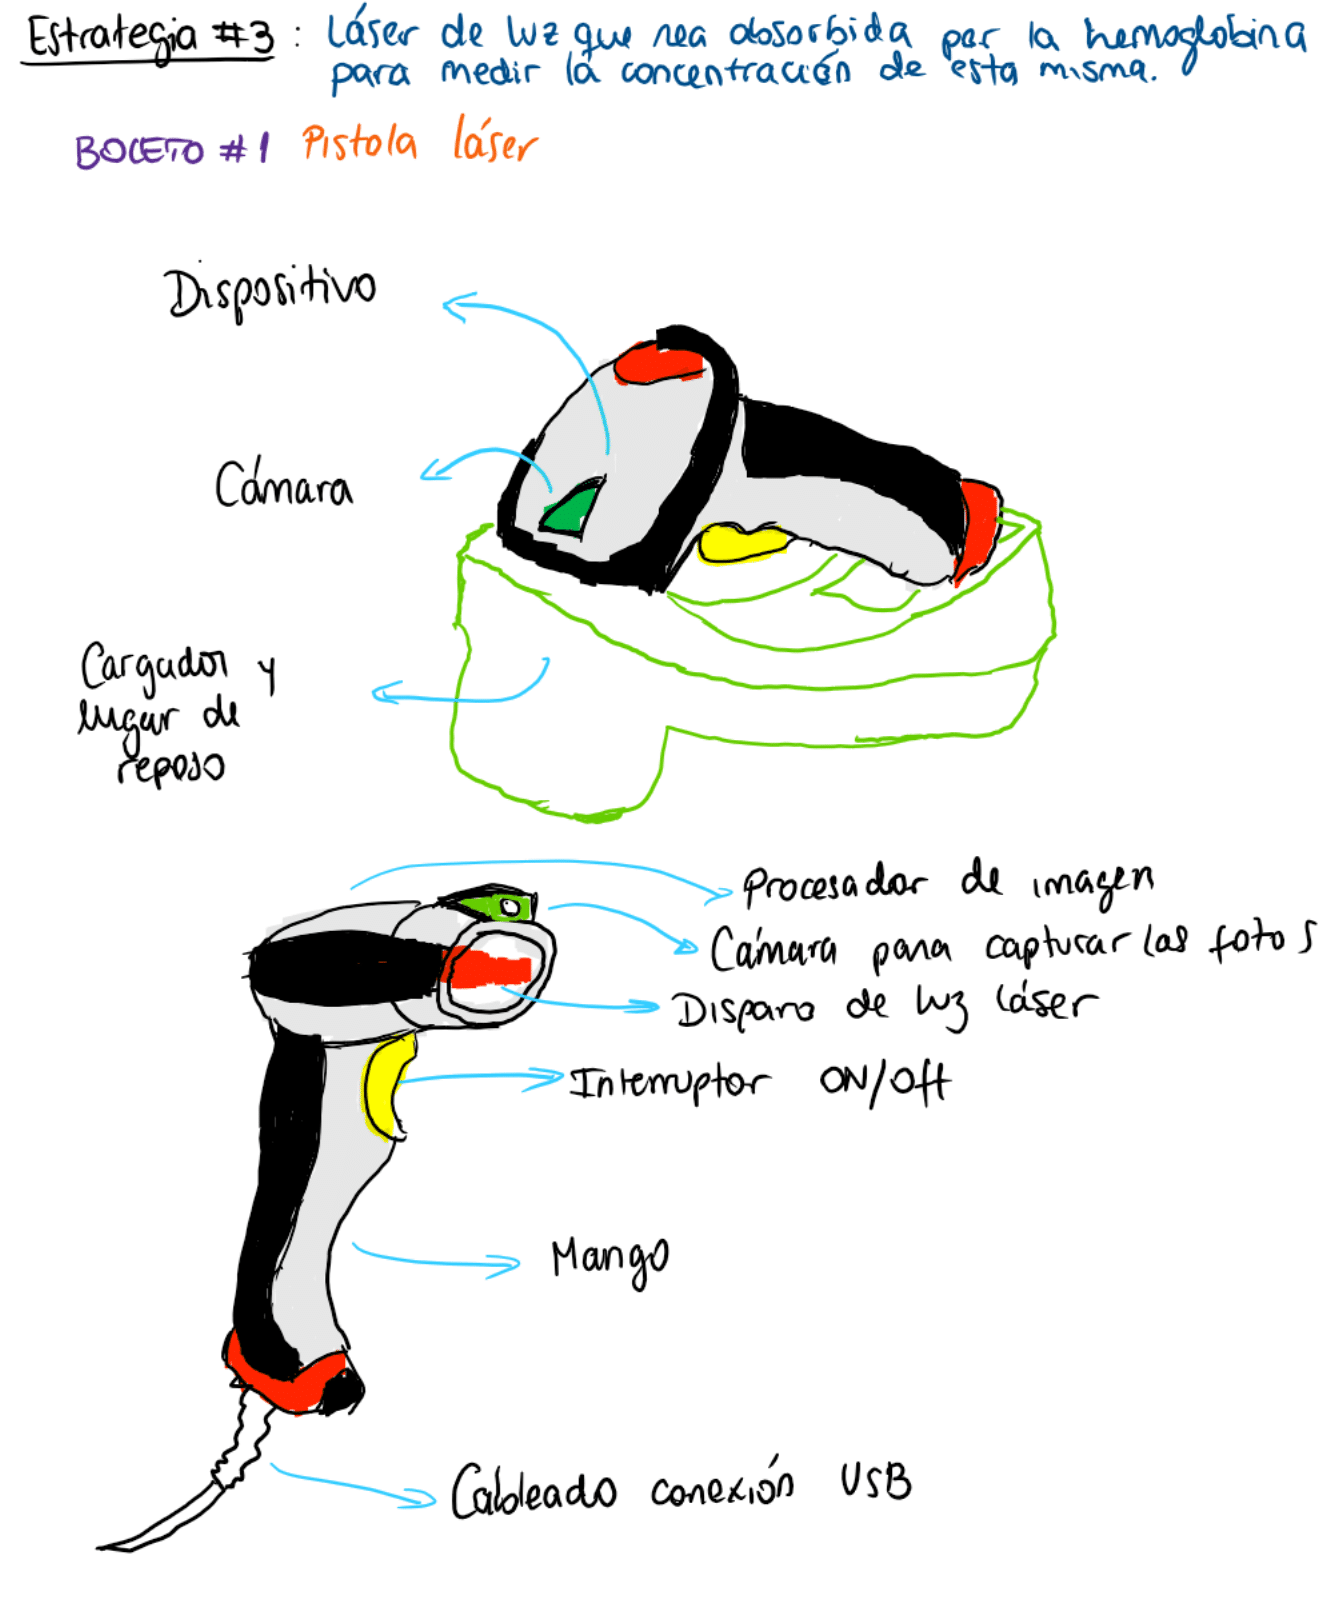 Estrategia #3 : Láser de luz que sea absorbida por la hemoglobina
para medir la concentración de esta misma.
BOCETO #1 Pistola láser
Dispositivo
Cámara
Cargador y
lugar de
reposo
Procesador de imagen
Cámara para capturar las fotos
Disparo de luz láser
Interruptor ON/Off
Mango
Cableado conexión USB